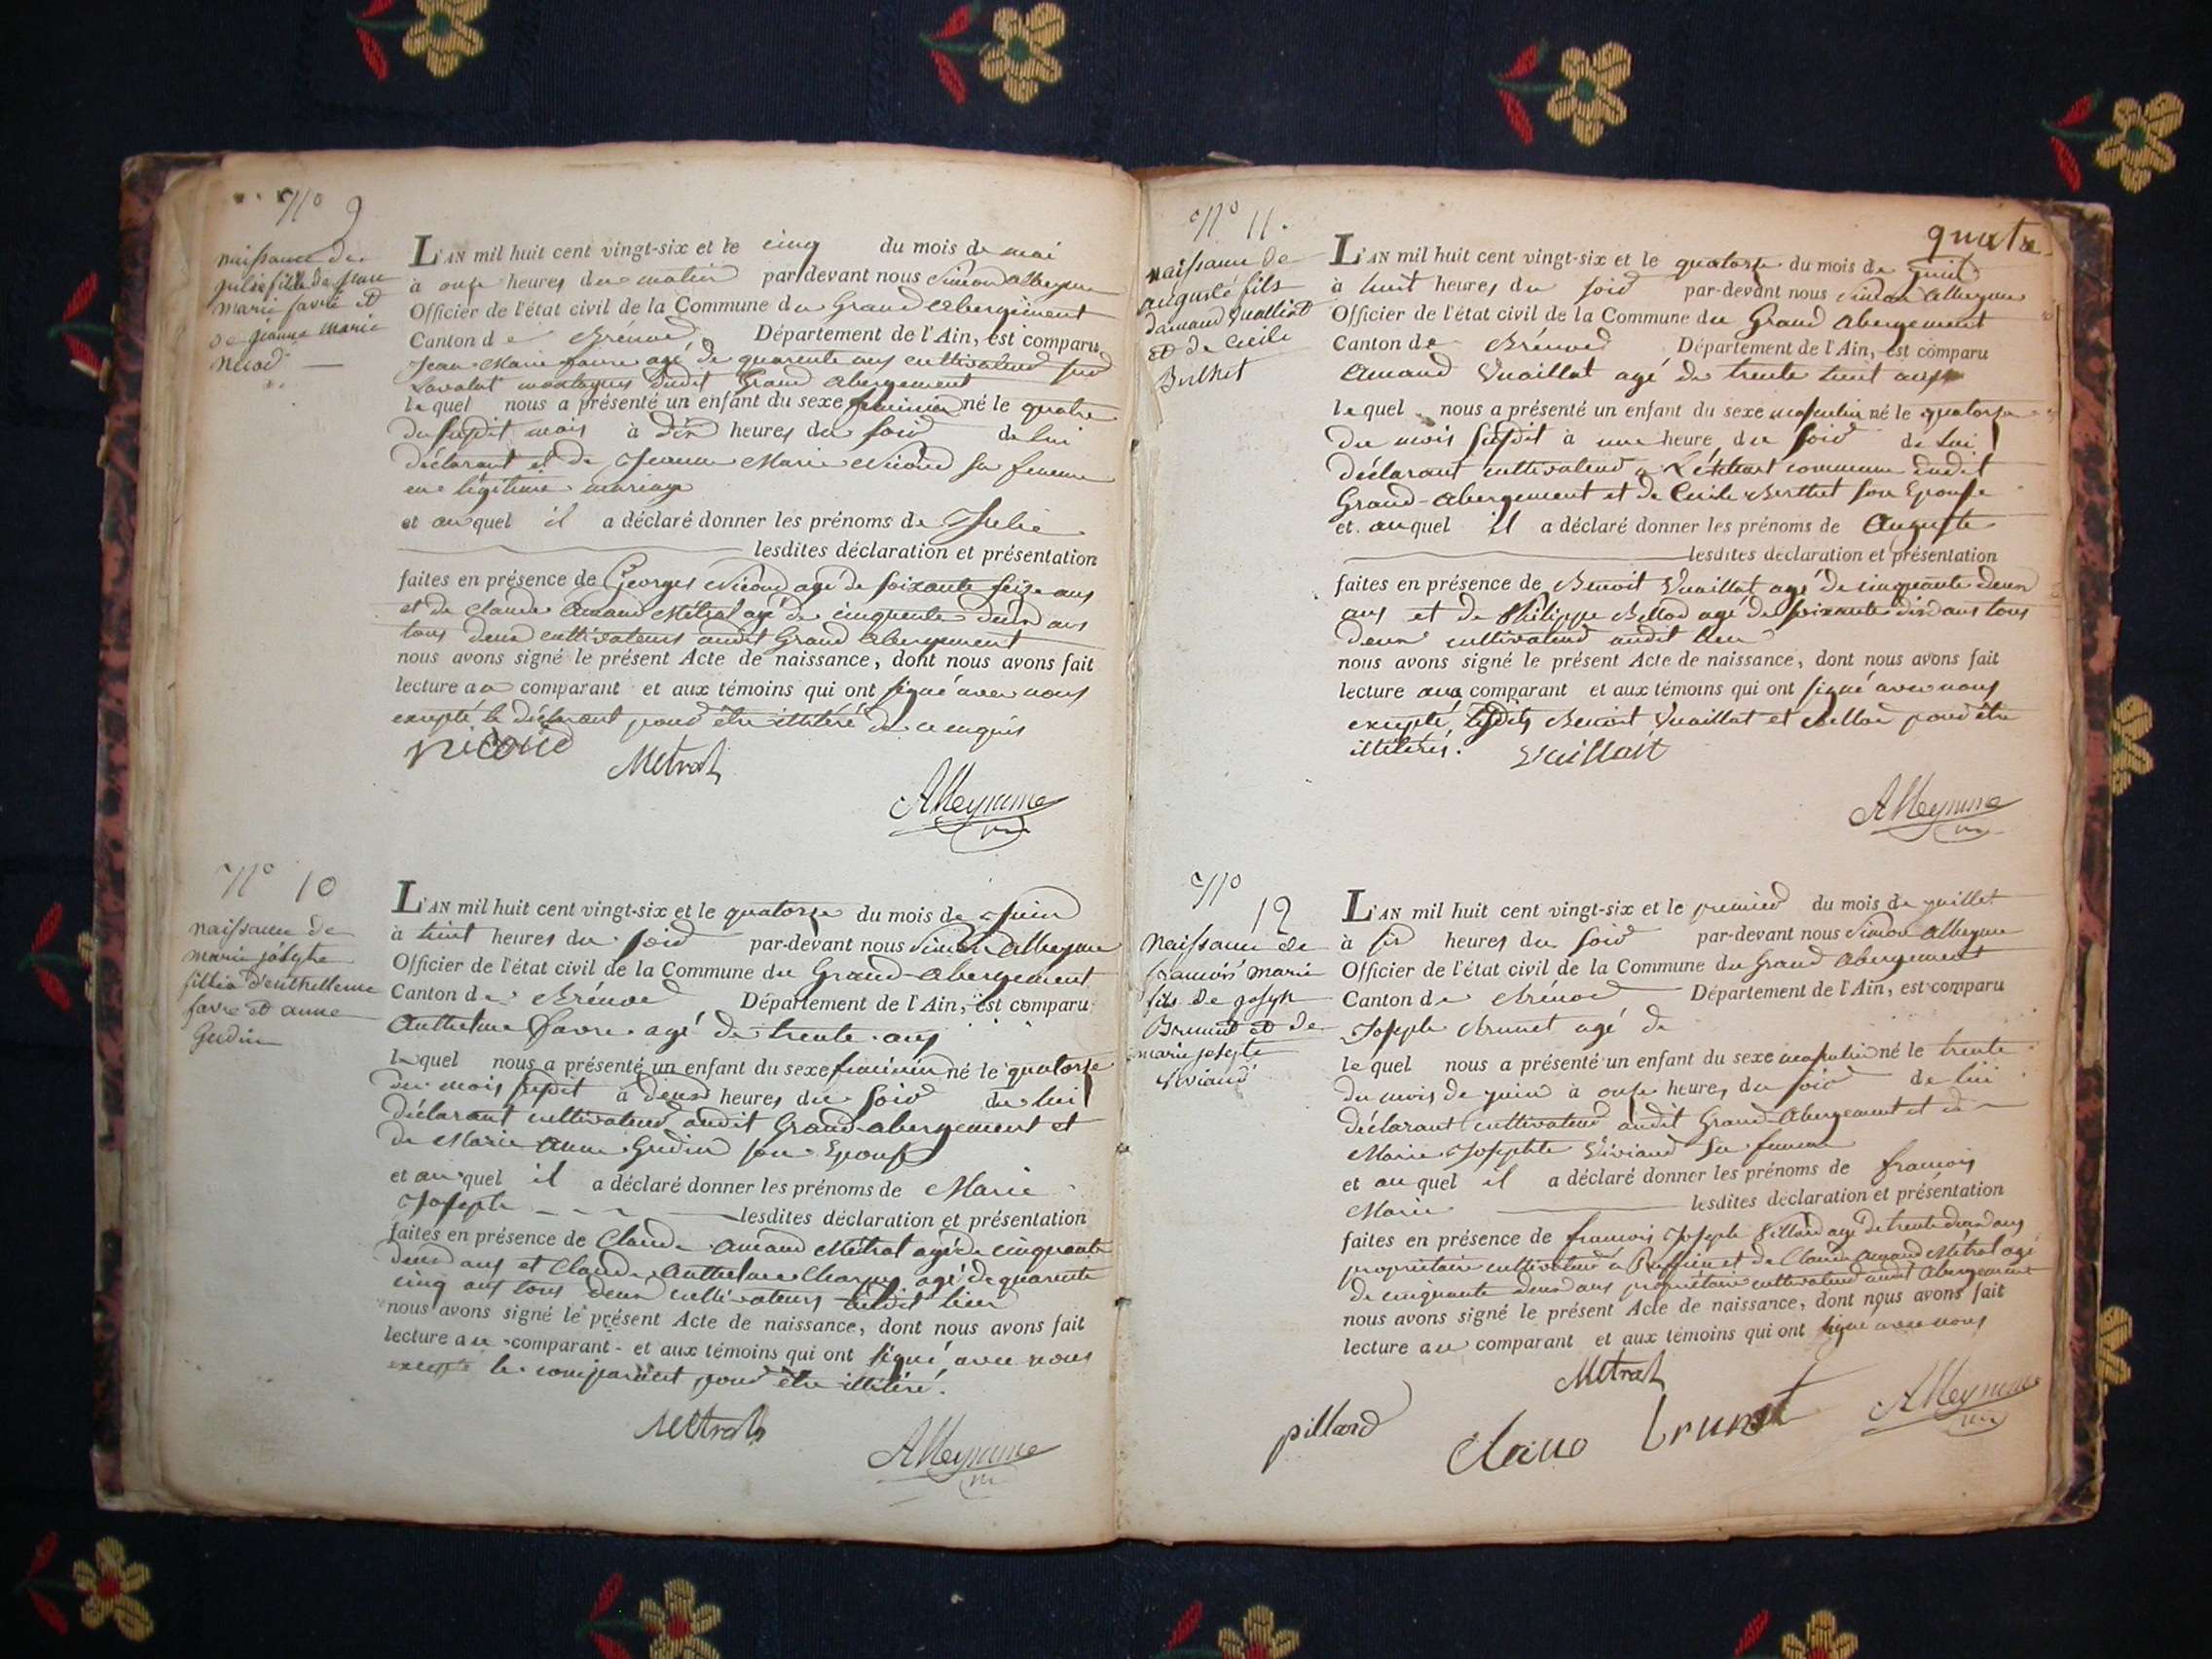 N° 9
naissance de
julie fille de jean
marie favre et
de jeanne marie
nicod
L'AN mil huit cent vingt-six et le cinq du mois de mai
à onze heures du matin par-devant nous Simon Alleyme
Officier de l'état civil de la Commune du Grand abergement
Canton de Brénod Département de l'Ain, est comparu
Jean Marie favre agé de quarente ans cultivateur sur
Lavalat montagnes dudit Grand abergement
lequel nous a présenté un enfant du sexe feminin né le quatre
du susdit mois à dix heures du soir de lui
déclarant et de Jeanne Marie Nicoud sa femme
en légitime mariage
et auquel il a déclaré donner les prénoms de Julie
lesdites déclaration et présentation
faites en présence de Georges Nicoud agé de soixante seize ans
et de Claude Amand Métral agé de cinquente deux ans
tous deux cultivateurs audit Grand abergement
nous avons signé le présent Acte de naissance, dont nous avons fait
lecture au comparant et aux témoins qui ont signé avec nous
excepté le déclarant pour être illitéré de ce enquis
nicoud
Metral
Alleyme
N° 10
naissance de
marie josephe
fillie d'enthelleme
favre et anne
Gudin
L'AN mil huit cent vingt-six et le quatorze du mois de Juin
à huit heures du soir par-devant nous Simon Alleyme
Officier de l'état civil de la Commune du Grand-abergement
Canton de Brénod Département de l'Ain, est comparu
Anthelme favre agé de trente ans
lequel nous a présenté un enfant du sexe feminin né le quatorze
du mois susdit à deux heures du soir de lui
déclarant cultivateur audit Grand-abergement et
de Marie Anne Gudin son Epouse
et auquel il a déclaré donner les prénoms de Marie
Josephe lesdites déclaration et présentation
faites en présence de Claude Amand Métral agé de cinquante
deux ans et Claude Anthelme Charpy agé de quarente
cinq ans tous deux cultivateurs dudit lieu
nous avons signé le présent Acte de naissance, dont nous avons fait
lecture au comparant et aux témoins qui ont signé avec nous
excepté le comparant pour être illitéré.
Metral
Alleyme
quatre
N° 11.
naissance de
auguste fils
damand Vualliat
et de Cecile
Berthet
L'AN mil huit cent vingt-six et le quatorze du mois de juin
à huit heures du soir par-devant nous Simon Alleyme
Officier de l'état civil de la Commune du Grand Abergement
Canton de Brénod Département de l'Ain, est comparu
Amand Vuaillat agé de trente huit ans
lequel nous a présenté un enfant du sexe masculin né le quatorze
du mois susdit à une heure du soir de lui
déclarant cultivateur a commune dudit
Grand-abergement et de Cecile Berthet son Epouse
et auquel il a déclaré donner les prénoms de Auguste
lesdites déclaration et présentation
faites en présence de Benoit Vuaillat agé de cinquante deux
ans et de Philippe Bellod agé de soixante dix ans tous
deux cultivateur audit lieu
nous avons signé le présent Acte de naissance, dont nous avons fait
lecture aux comparant et aux témoins qui ont signé avec nous
excepté lesdits Benoit Vuaillat et Bellod pour être
illitérés.
Vuillait
Alleyme
N° 12
Naissance de
françois marie
fils de joseph
Brunet et de
marie josephe
Viviand
L'AN mil huit cent vingt-six et le premier du mois de juillet
à six heures du soir par-devant nous Simon Alleyme
Officier de l'état civil de la Commune du Grand Abergement
Canton de Brénod Département de l'Ain, est comparu
Joseph Brunet agé de
lequel nous a présenté un enfant du sexe masculin né le trente
du mois de juin à onze heures du soir de lui
déclarant cultivateur audit Grand-Abergement et de
Marie Josephte Viviand sa femme
et auquel il a déclaré donner les prénoms de françois
Marie lesdites déclaration et présentation
faites en présence de françois Joseph Pillard agé de trente deux ans
propriétaire cultivateur à Ruffieu et de Claude Amand Métral agé
de cinquante deux ans propriétaire cultivateur audit Abergement
nous avons signé le présent Acte de naissance, dont nous avons fait
lecture au comparant et aux témoins qui ont signé avec nous
Metral
pillard
brunet
Alleyme